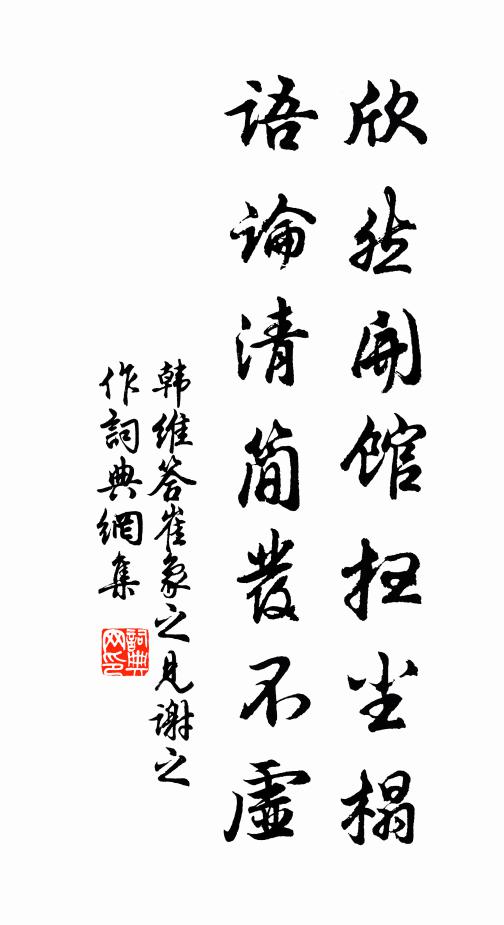 欣然開館扫坐榻
語論清簡發不虛
韩維答崔象之見謝之
作詞典網集
詞典
网印